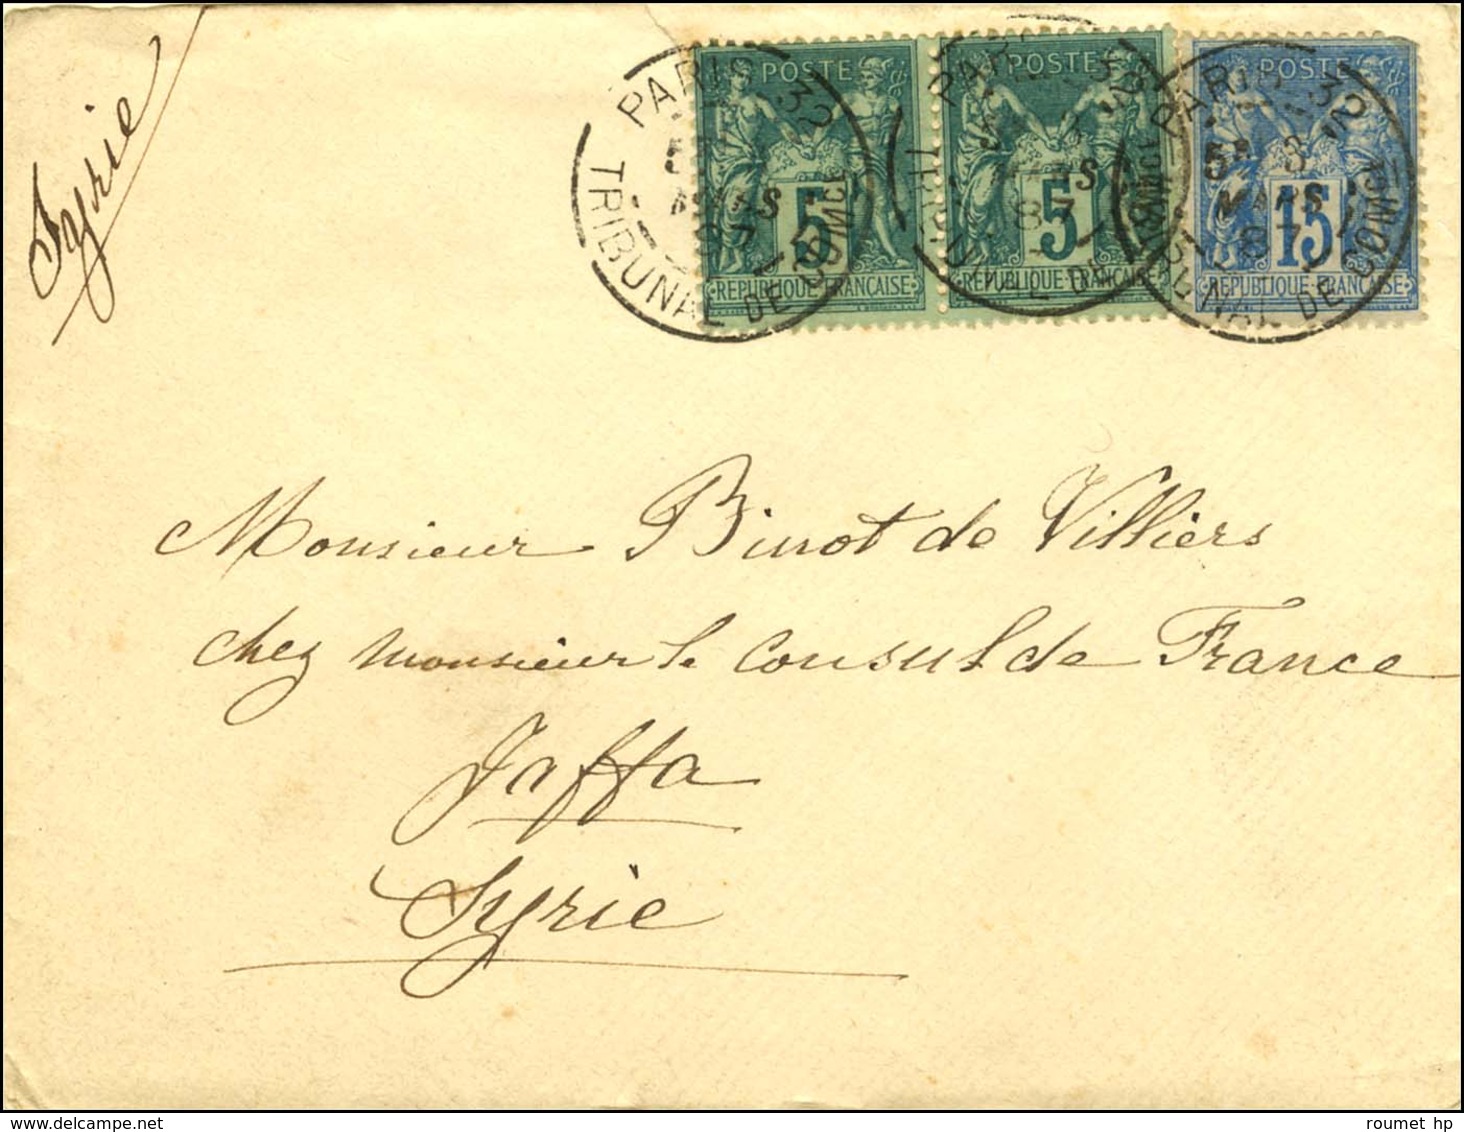 Syrie
POSTE
5
REPUBLIQUE FRANÇAISE
POSTE
5
REPUBLIQUE FRANÇAISE
POSTE
15
REPUBLIQUE FRANÇAISE
PARIS 32
MARS
87
TRIBUNAL DE COMCE
PARIS 32
MARS
87
TRIBUNAL DE COMCE
PARIS 32
5E 3
MARS
87
TRIBUNAL DE COMCE
Monsieur Binot de Villiers
chez monsieur le Consul de France
Jaffa
Syrie
roumet hp